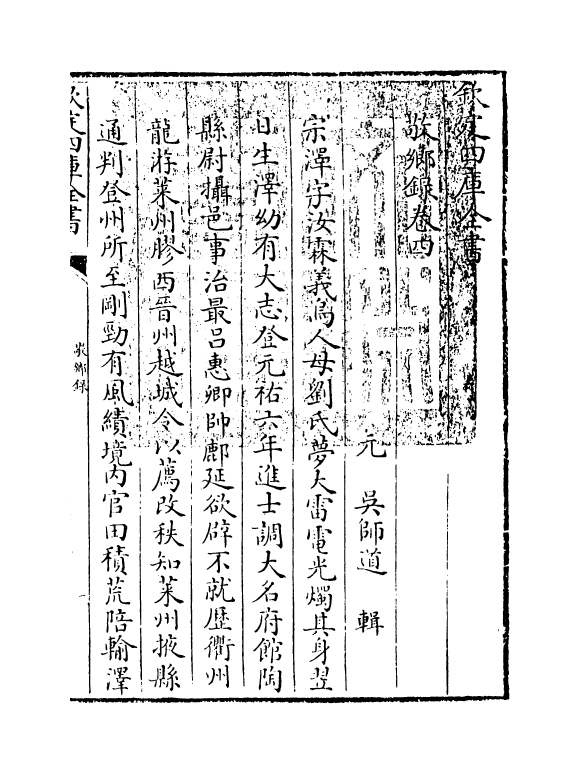 欽定四庫全書
敬鄉錄卷四
元 吳師道 輯
宗澤字汝霖義烏人母劉氏夢大雷電光燭其身翌
日生澤幼有大志登元祐六年進士調大名府館陶
縣尉攝邑事治最呂惠卿帥鄜延欲辟不就歴衢州
龍游萊州膠西晉州趙城令以薦改秩知萊州掖縣
通判登州所至剛勁有風績境内官田積荒陪輸澤
欽定四庫全書
敬鄉録
一